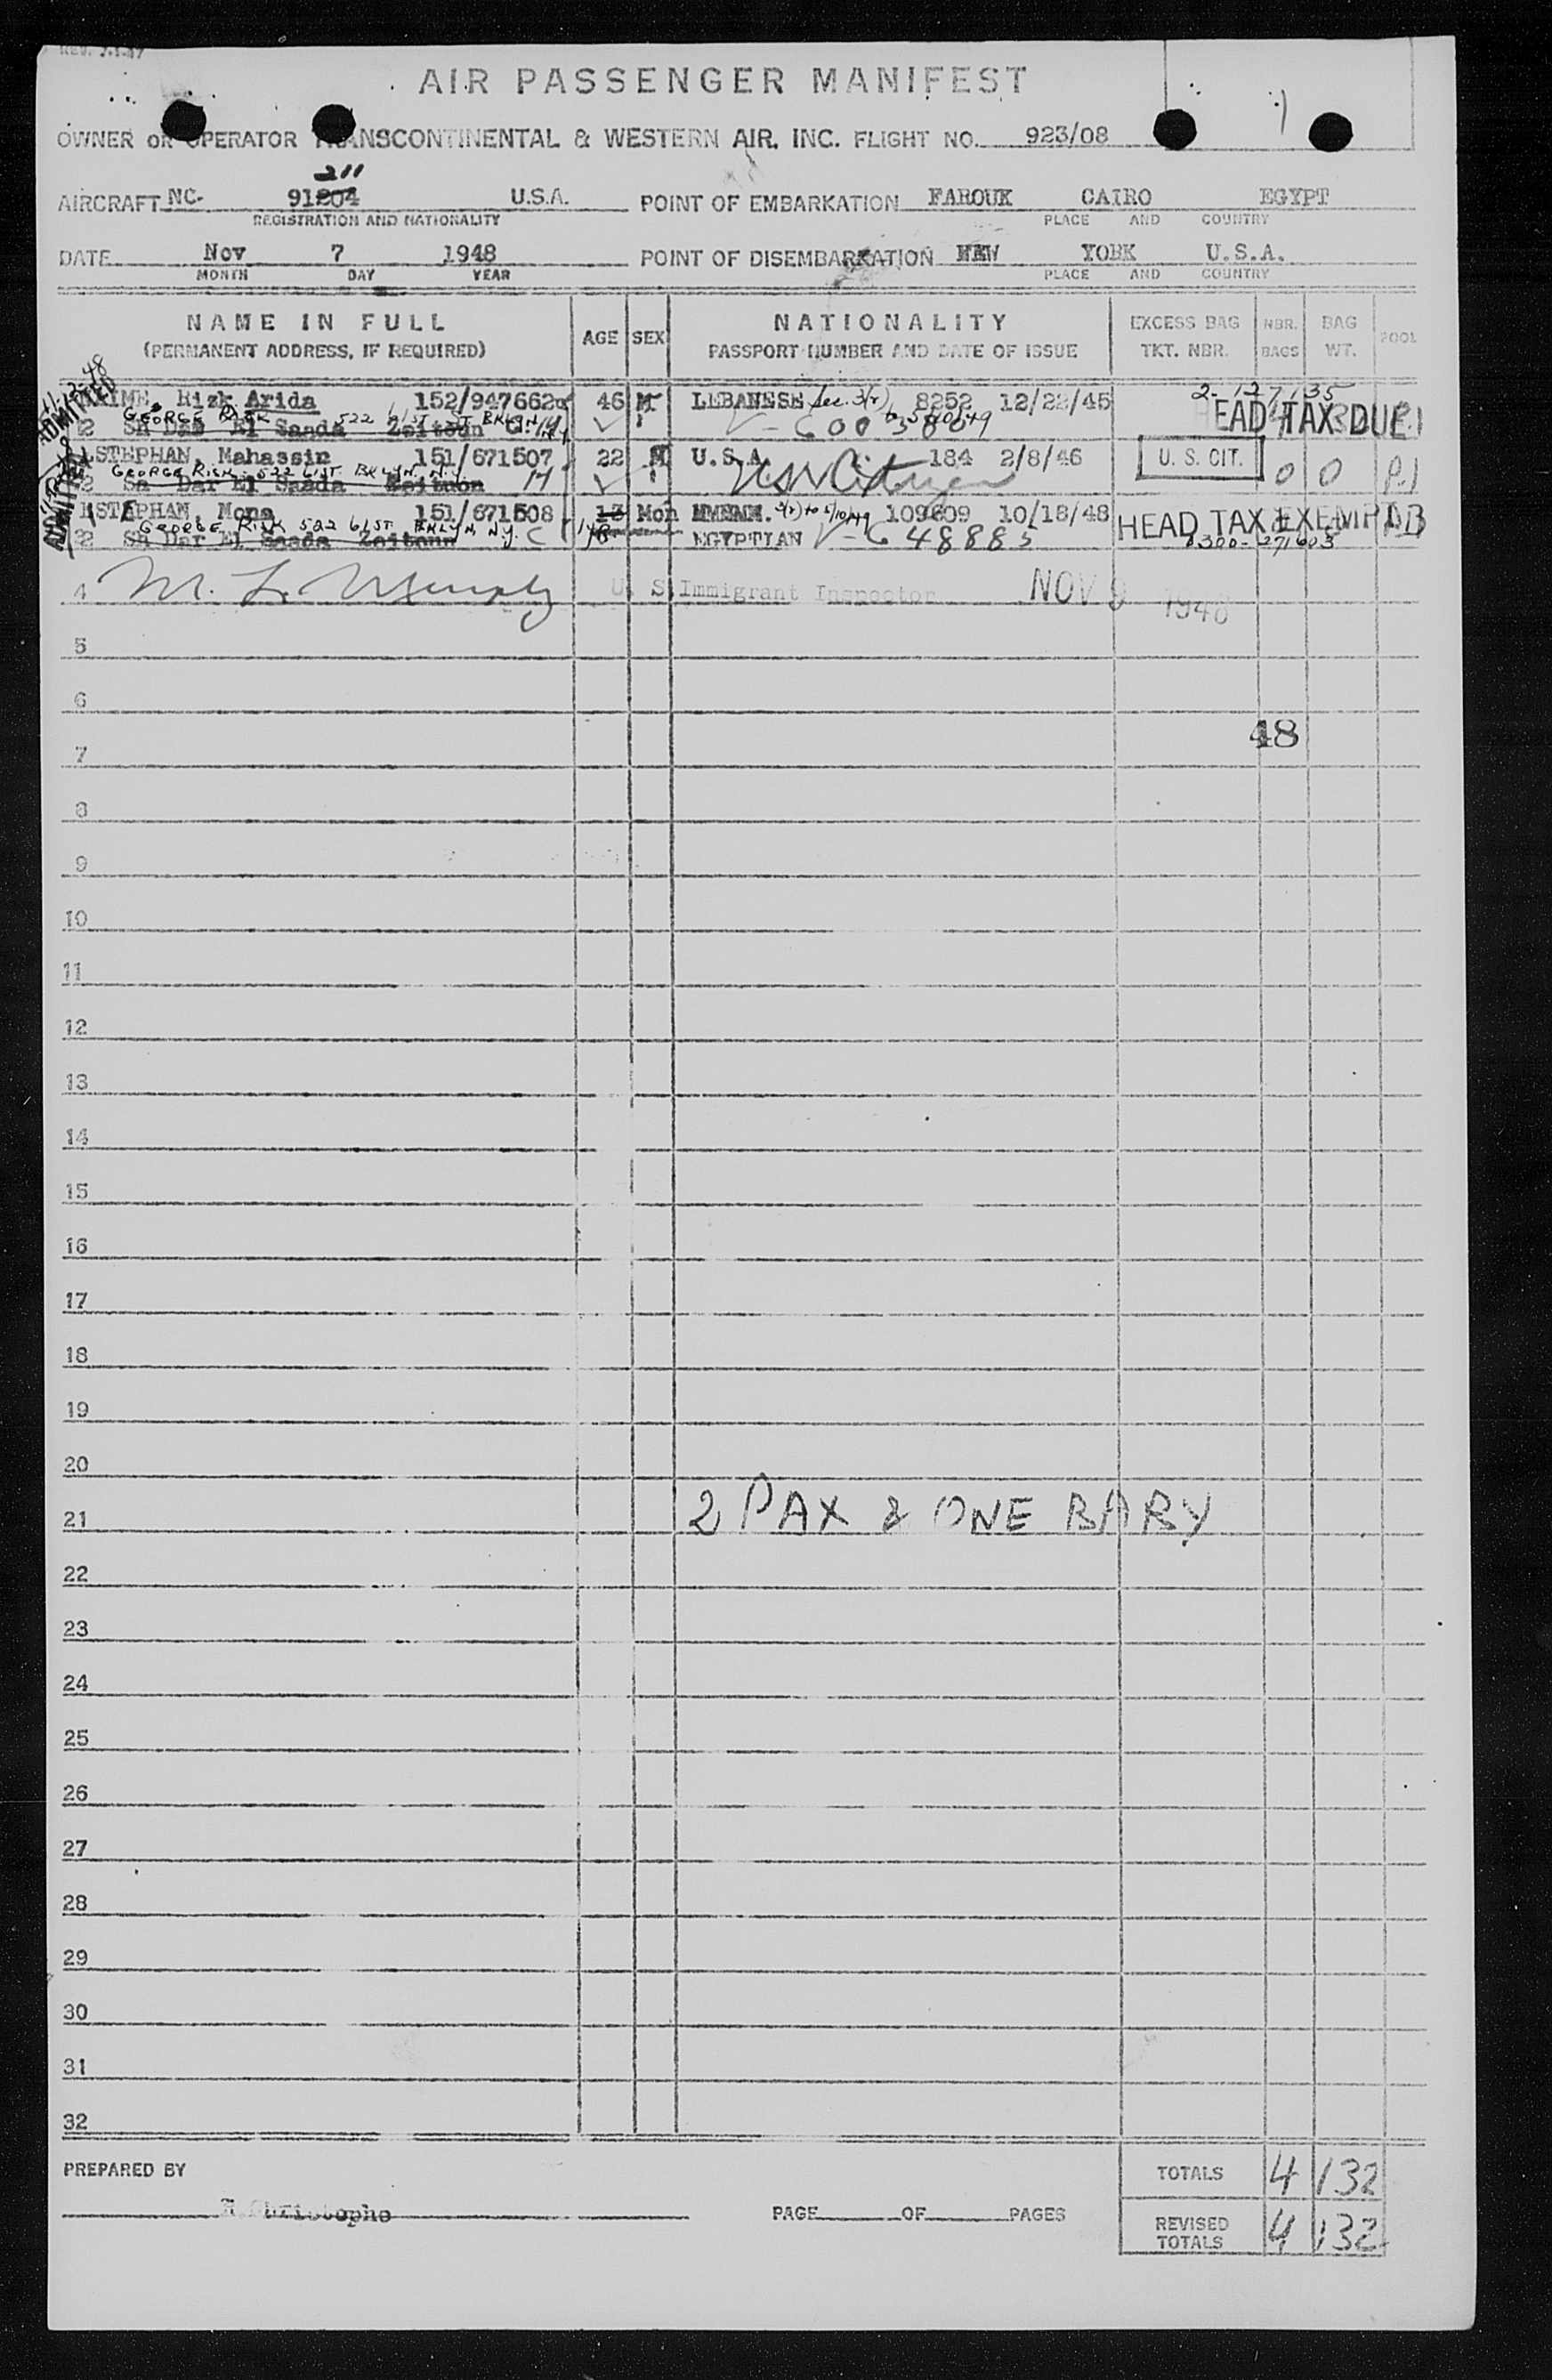 REV. 7-1-47
AIR PASSENGER MANIFEST
OWNER OR OPERATOR TRANSCONTINENTAL & WESTERN AIR, INC. FLIGHT NO. 923/08
211
AIRCRAFT NC- 91204 U.S.A. POINT OF EMBARKATION FAROUK CAIRO EGYPT
REGISTRATION AND NATIONALITY PLACE AND COUNTRY
DATE Nov 7 1948 POINT OF DISEMBARKATION NEW YORK U.S.A.
MONTH DAY YEAR PLACE AND COUNTRY
NAME IN FULL AGE SEX NATIONALITY EXCESS BAG NBR. BAG POOL
(PERMANENT ADDRESS, IF REQUIRED) PASSPORT NUMBER AND DATE OF ISSUE TKT. NBR. BAGS WT.
Rizk Arida 152/947662 46 M LEBANESE Sec. 3(2) 8252 12/22/45
GEORGE RISK 522 61 ST ST BKLYN HEAD TAX DUE
Dar El Saada Zeitoun
ADMITTED
ESTEPHAN, Mahassin 151/671507 22 U.S.A. 184 2/8/46 U. S. CIT. 0 0 P.1
GEORGE RISK 522 61ST BKLYN. N.Y. US Citizen
Sa Dar El Saada Zeitoun
ESTEPHAN, Mona 151/671508 Mon 109609 10/18/48 HEAD TAX EXEMPT
GEORGE RISK 522 61ST BKLYN, N.Y. EGYPTIAN V-648885
Sa Dar El Saada Zeitoun
4 U. S. Immigrant Inspector NOV 9 1948
5
6
48
7
8
9
10
11
12
13
14
15
16
17
18
19
20
21 2 PAX & ONE BABY
22
23
24
25
26
27
28
29
30
31
32
PREPARED BY TOTALS 4 132
Christophe PAGE OF PAGES REVISED TOTALS 4 132